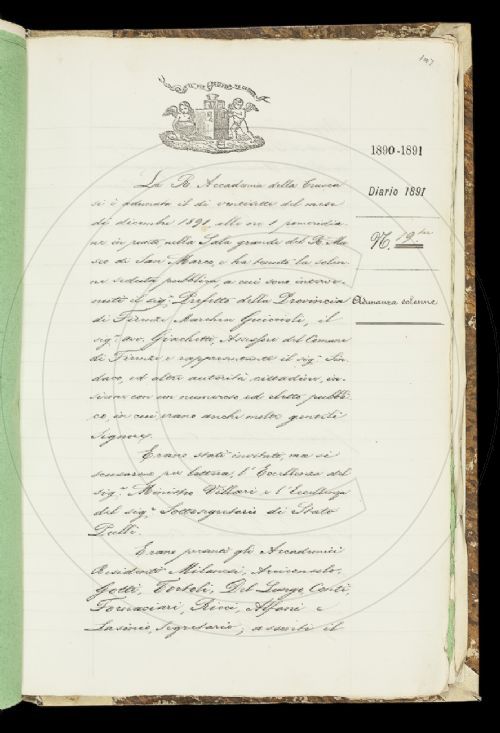 147
1890-1891
Diario 1891
N. 19
Adunanza solenne
La R. Accademia della Crusca
si è adunata il dì ventisette del mese
di dicembre 1891 alle ore 1 pomeridia-
ne in punto, nella Sala grande del R. Mu-
seo di San Marco, e ha tenuta la solen-
ne seduta pubblica, a cui sono interve-
nuti il sig. Prefetto della Provincia
di Firenze Marchese Guiccioli, il
sig. avv. Giachetti, Assessore del Comune
di Firenze e rappresentante il sig. Sin-
daco, ed altre autorità cittadine, in-
sieme con un numeroso ed eletto pubbli-
co, in cui erano anche molte gentili
Signore.
Erano stati invitati, ma si
scusarono per lettera, l'Eccellenza del
sig. Ministro Villari e l'Eccellenza
del sig. Sottosegretario di Stato
Pullè.
Erano presenti gli Accademici
Residenti Milanesi,
Gotti, Tortoli, Del Lungo, Conti,
Fornaciari, Ricci, Alfani e
Lasinio, Segretario; assenti il